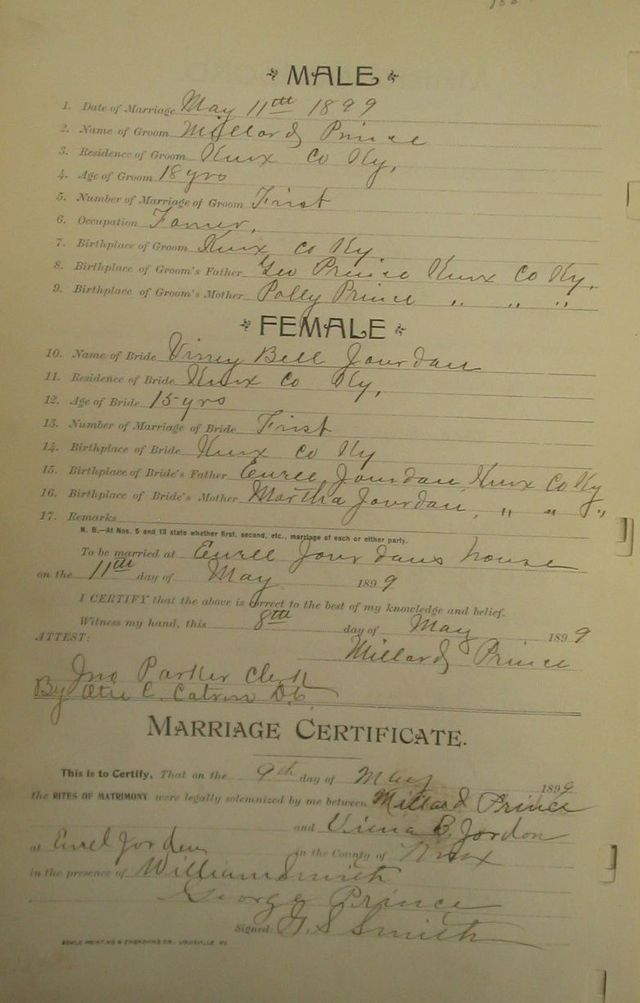 MALE
1. Date of Marriage May 11th 1899
2. Name of Groom Millard Prince
3. Residence of Groom Knox Co Ky,
4. Age of Groom 18 yrs
5. Number of Marriage of Groom First
6. Occupation Farmer,
7. Birthplace of Groom Knox Co Ky
8. Birthplace of Groom's Father Geo Prince Knox Co Ky.
9. Birthplace of Groom's Mother Polly Prince " " "
FEMALE
10. Name of Bride Viney Bell Jourdan
11. Residence of Bride Knox Co Ky,
12. Age of Bride 15 yrs
13. Number of Marriage of Bride First
14. Birthplace of Bride Knox Co Ky
15. Birthplace of Bride's Father Eurell Jourdan Knox Co Ky
16. Birthplace of Bride's Mother Martha Jourdan, " " "
17. Remarks
N. B.—At Nos. 5 and 13 state whether first, second, etc., marriage of each or either party.
To be married at Eurell Jourdans house
on the 11th day of May 1899
I CERTIFY that the above is correct to the best of my knowledge and belief.
Witness my hand, this 8th day of May 1899
Millard Prince
ATTEST:
Jno Parker Clerk
By C. Catron D.C.
MARRIAGE CERTIFICATE.
This is to Certify, That on the 9th day of May 1899
the RITES OF MATRIMONY were legally solemnized by me between Millard Prince
and Vinna B. Jordon
at Eurel Jorden in the County of Knox
in the presence of William Smith
George Prince
Signed: G. S. Smith